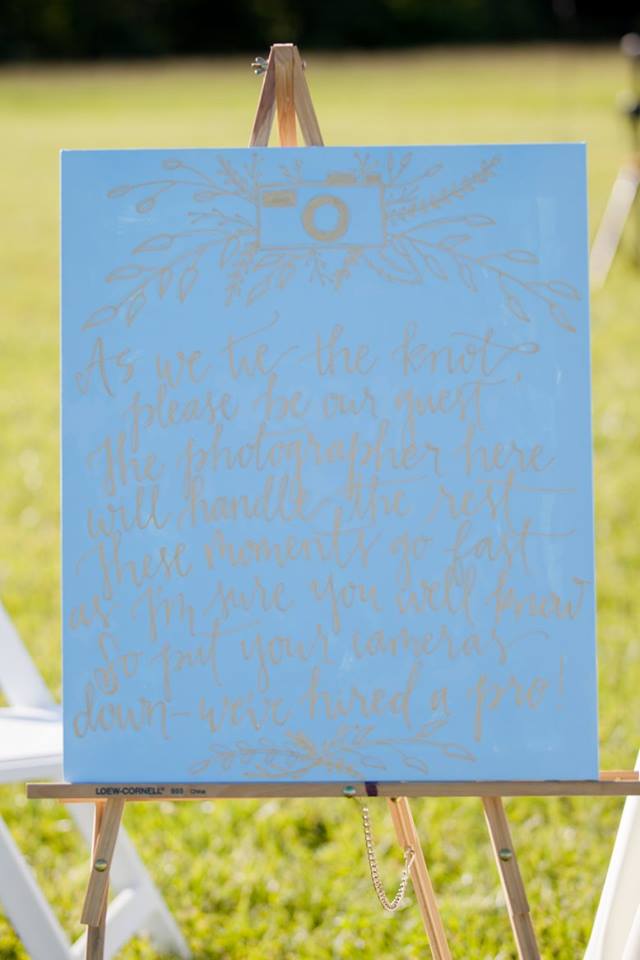 As we tie the knot,
please be our guest
The photographer here
will handle the rest
These moments go fast
as I'm sure you well know
So put your cameras
down-we've hired a pro!
LOEW-CORNELL® 693 China